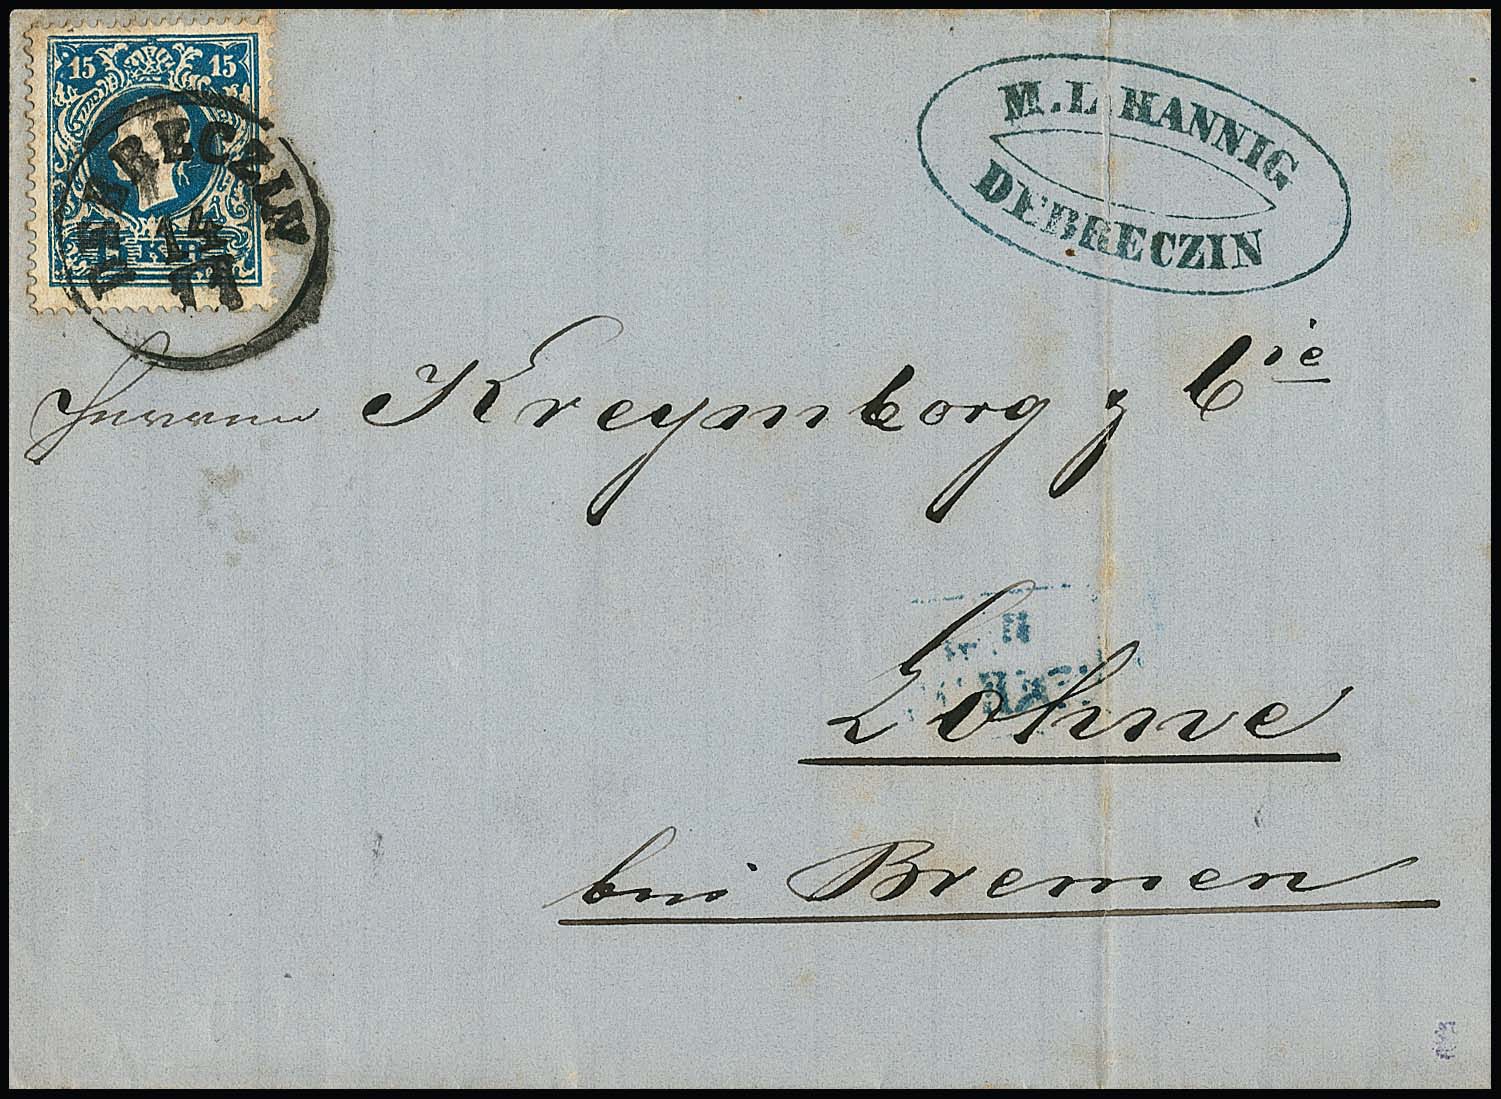 15 15
15 KR
DEBRECZIN
14
M. L. HANNIG
DEBRECZIN
Herren Kreymborg & Cie
Lohne
bei Bremen